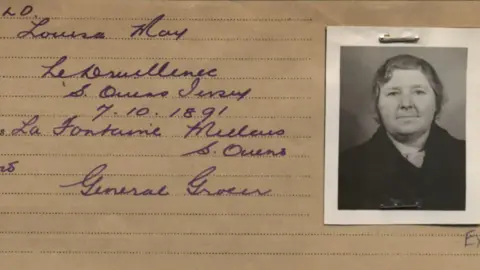 Louisa May
Le Druillenec
S. Ouens Jersey
7. 10. 1891
La Fontaine Millais
S. Ouens
General Grocer